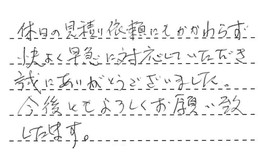 休日の見積り依頼にもかかわらず
快よく早急に対応していただき
誠にありがとうございました。
今後ともよろしくお願い致
します。